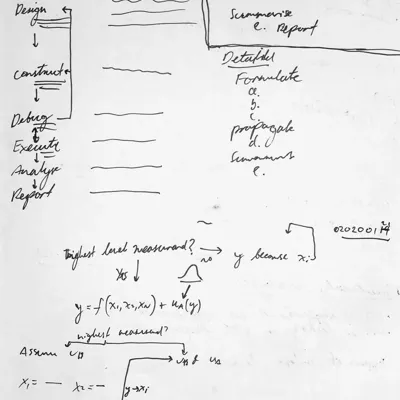 Design
Construct
Debug
Execute
Analyse
Report
Summarise
e. Report
Detailed
Formulate
a.
b.
c.
propagate
d.
e.
Highest level measurand?
Yes
no
y because xi
y = f(x1, x2, xN) + uA(y)
highest measurand?
Assume uB
uB & uA
x1 = — x2 = —
y→xi